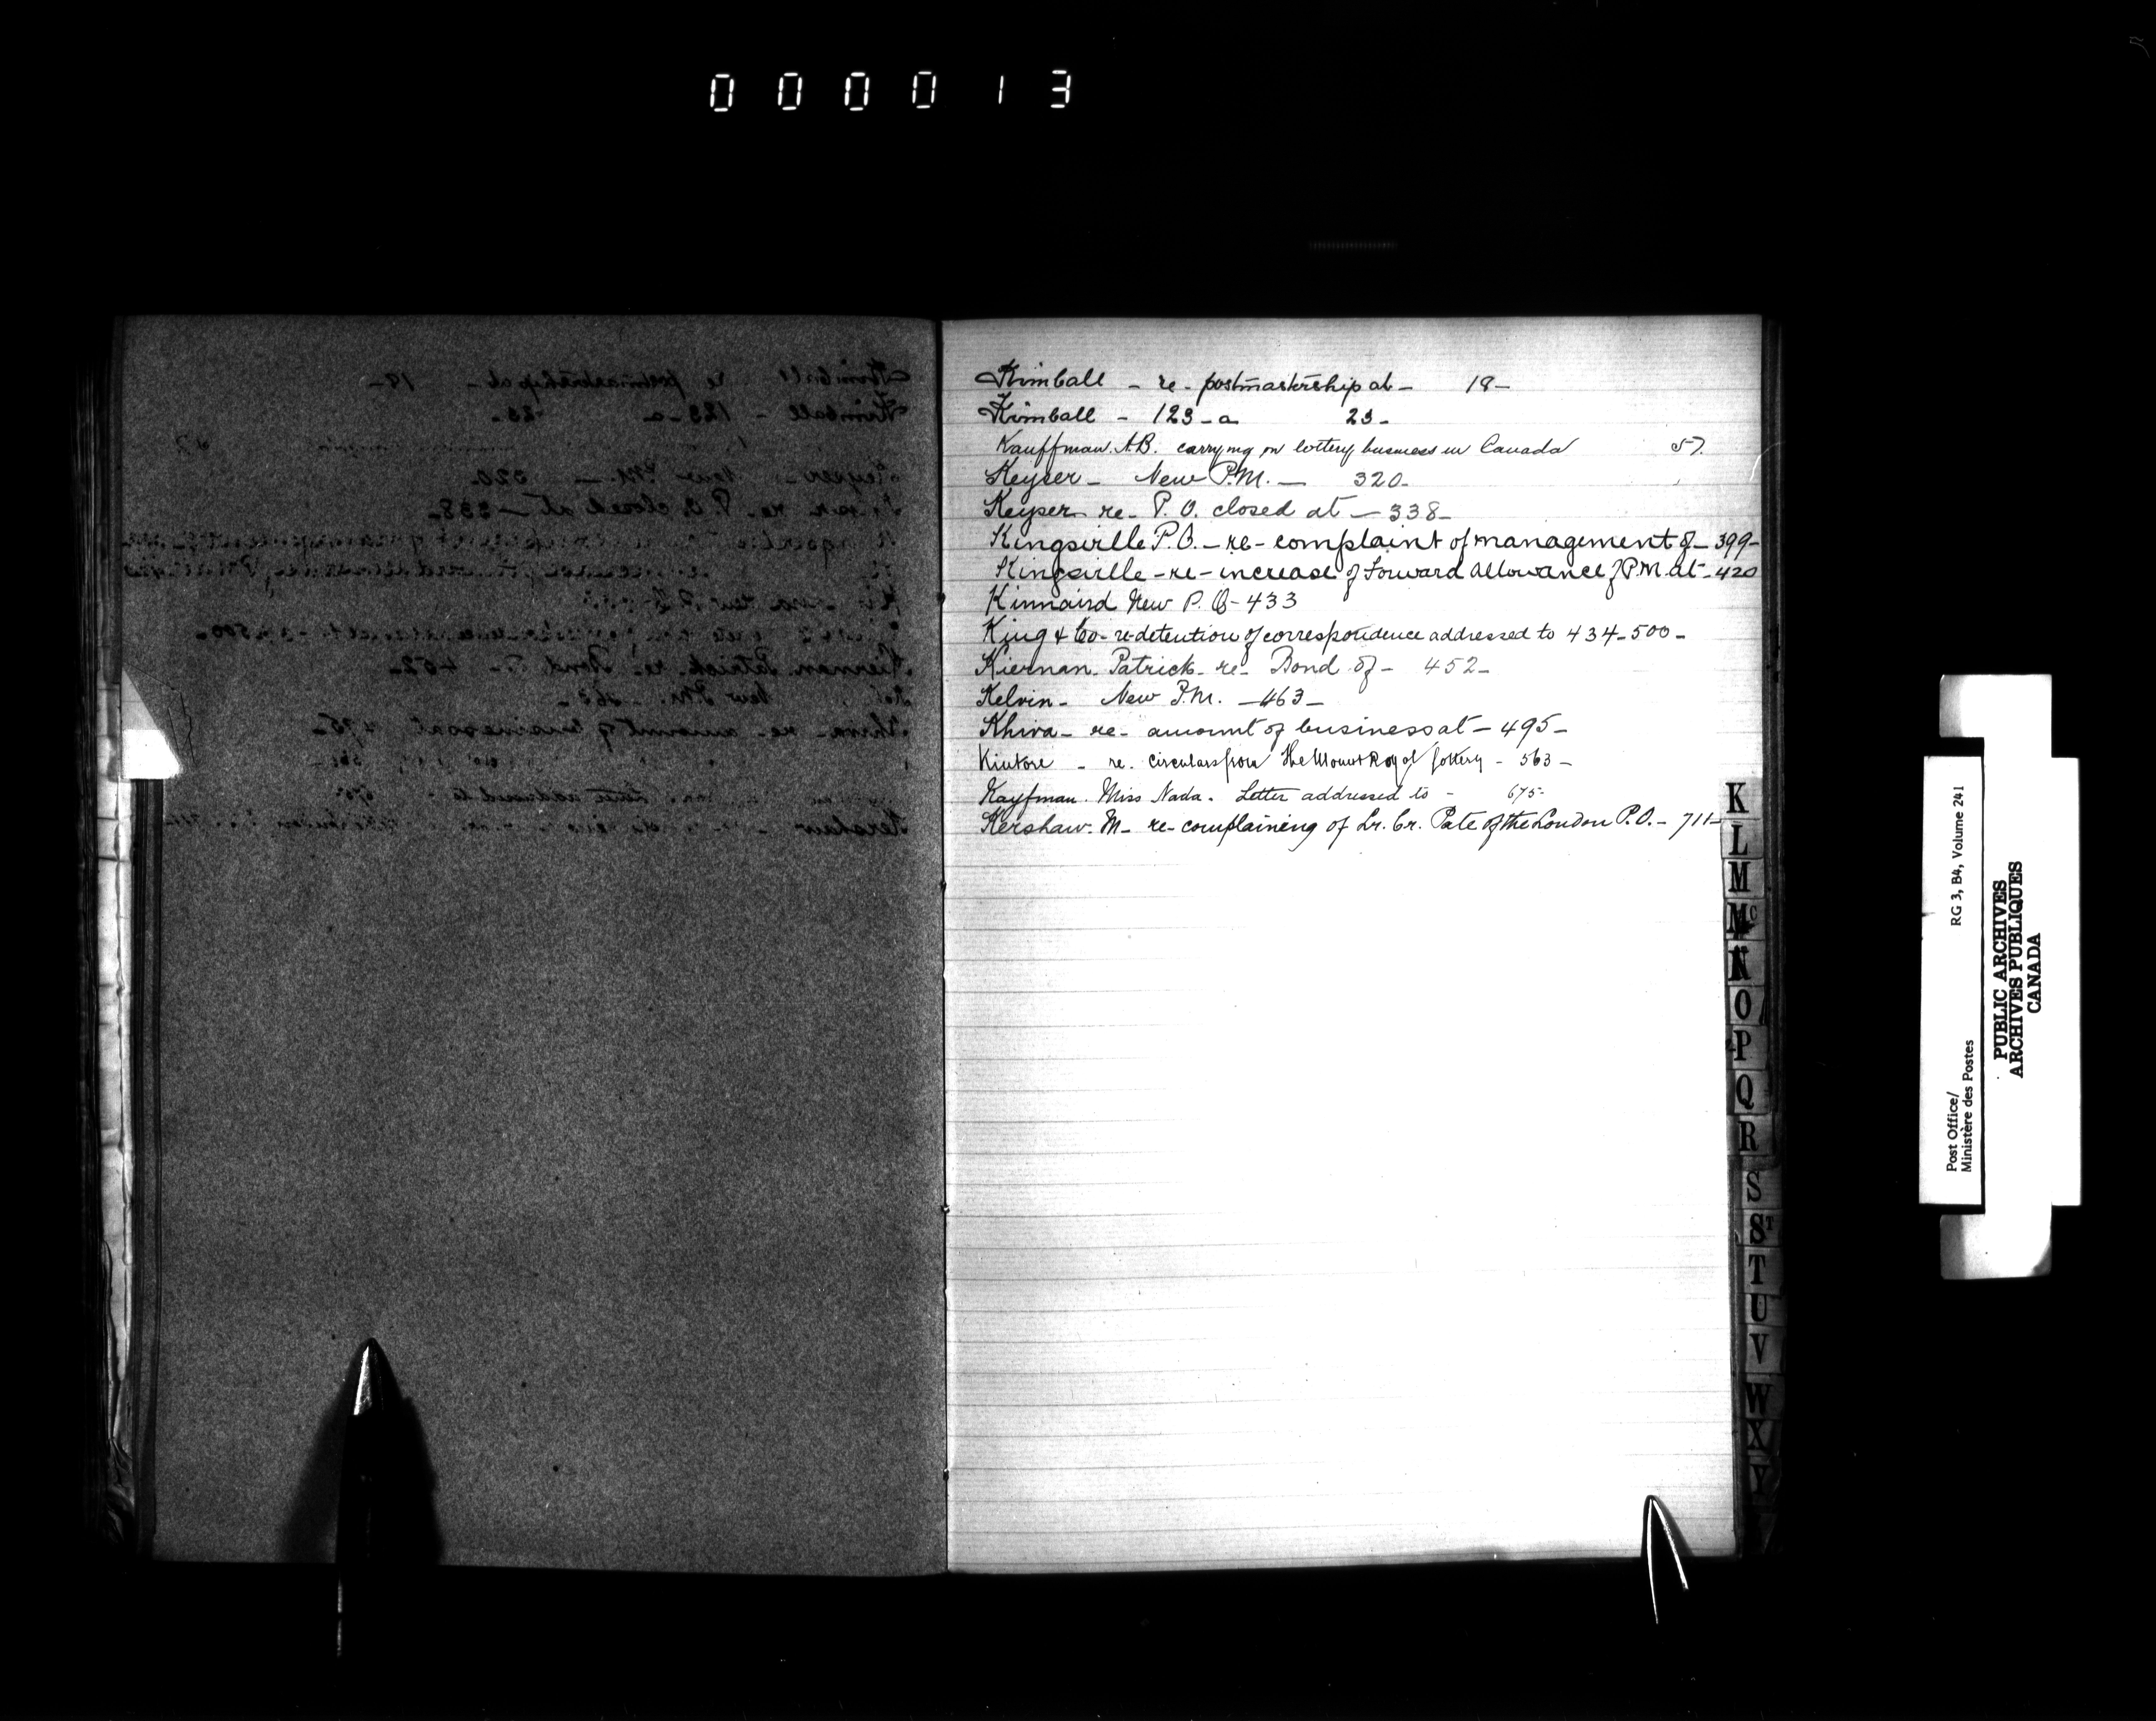 000013
Kimball - re - postmastership at - 18 -
Kimball - 123 - a 23 -
Kauffman. A.B. carrying on lottery business in Canada 57.
Keyser - New P.M. - 320 -
Keyser re - P.O. closed at - 338 -
Kingsville P.O. - re - complaint of management of - 399 -
Kingsville - re - increase of Forward Allowance of P.M. at - 420
Kinnaird New P.O - 433
King & Co - re - detention of correspondence addressed to 434 - 500 -
Kiernan - Patrick - re - Bond of - 452 -
Kelvin - New P.M. - 463 -
Khiva - re - amount of business at - 495 -
Kintore - re. circulars from The Mount Royal Lottery - 563 -
Kayfman. Miss Nada. Letter addressed to - 675 -
Kershaw. M - re - complaining of Lr. Cr. Pate of the London P.O. - 711 -
K
L
M
Mc
N
O
P
Q
R
S
ST
T
U
V
W
X
Y
Post Office/ RG 3, B4, Volume 241
Ministère des Postes
PUBLIC ARCHIVES
ARCHIVES PUBLIQUES
CANADA